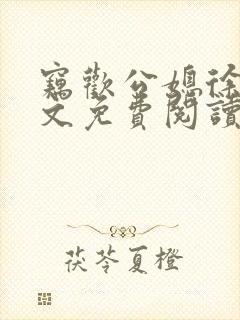 竊歡公媳徐
文免費閱讀
茯苓夏橙